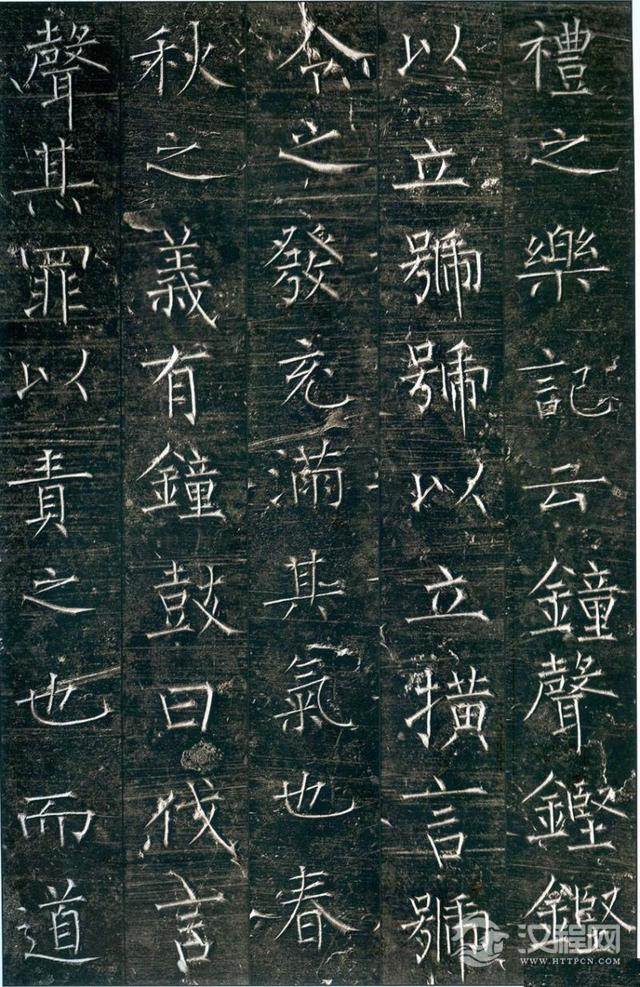 禮之樂記云鐘聲鏗鏗
以立號號以立橫言號
令之發充滿其氣也春
秋之義有鐘鼓曰伐言
聲其罪以責之也而道
汉程网
WWW.HTTPCN.COM